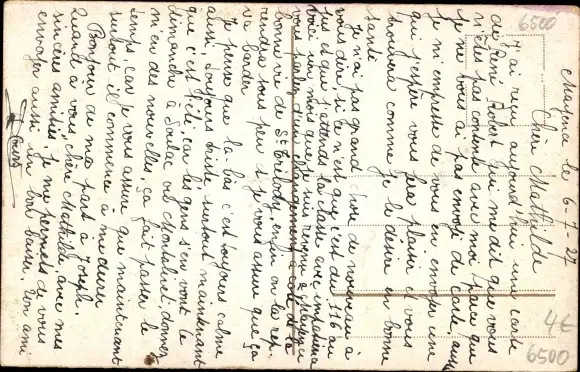 Mayence le 6-7-27
Chère Mathilde
J'ai reçu aujourd'hui une carte
de René Robert qui me dit que vous
n'êtes pas contente avec moi parce que
je ne vous ai pas envoyé de carte, aussi
je m'empresse de vous en envoyer une
qui j'espère vous fera plaisir et vous
trouvera comme je le désire en bonne
santé
Je n'ai pas grand chose de nouveau à
vous dire si ce n'est que c'est du 116 au
jus et que j'attends la classe avec impatience
voici un mois que je suis revenu à Mayence
vous parlez d'un changement à côté de la
bonne vie de St Trélody, enfin on la rep.
rendra sous peu et je vous assure que ça
va barder
Je pense que là bas c'est toujours calme
aussi, toujours triste surtout maintenant
que c'est l'été, car les gens s'en vont le
dimanche à Soulac ou Montalivet, donnez
m'en des nouvelles, ça fait passer le
temps, car je vous assure que maintenant
surtout il commence à me durer
Bonjour de ma part à Joseph.
Quand à vous, chère Mathilde, avec mes
sincères amitiés, je me permets de vous
envoyer aussi un bon baiser. Ton ami
6500
4€
6500